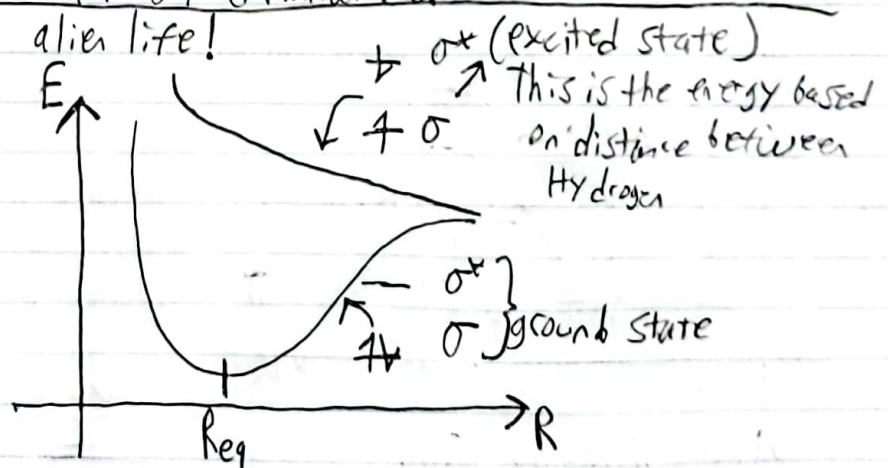 alien life!
σ* (excited state)
E
This is the energy based
σ
on distance between
Hydrogen
σ*
ground state
σ
R
Req